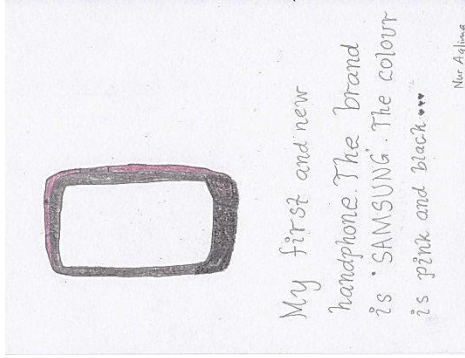 My first and new
handphone. The brand
is "SAMSUNG". The colour
is pink and black...
Nur Aglima